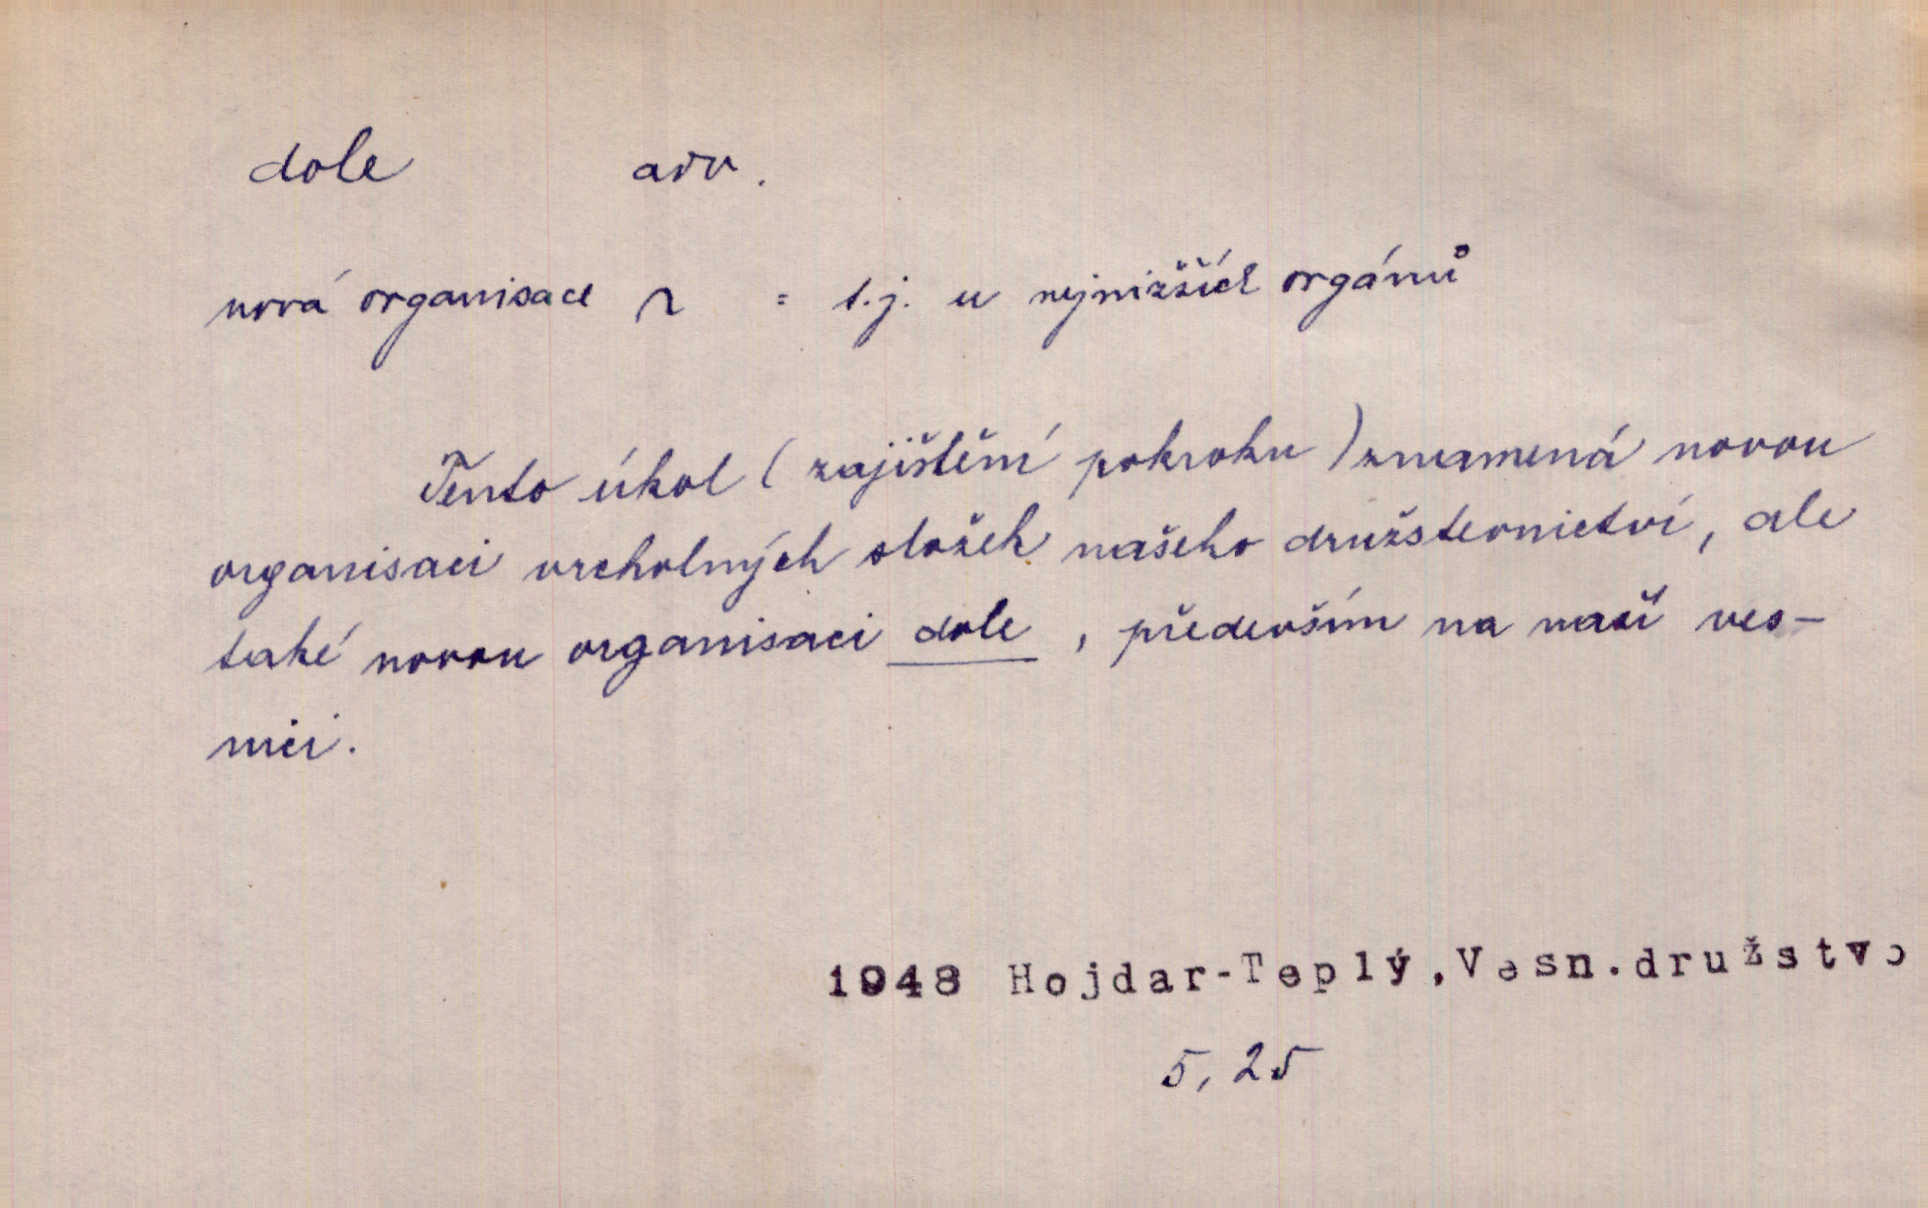 dole adv.
nová organisace ~ = t.j. u nejnižších orgánů
Tento úkol (zajištění pokroku) znamená novou
organisaci vrcholných složek našeho družstevnictví, ale
také novou organisaci dole, především na naší ves-
nici.
1948 Hojdar-Teplý,Vesn.družstvo
5, 25